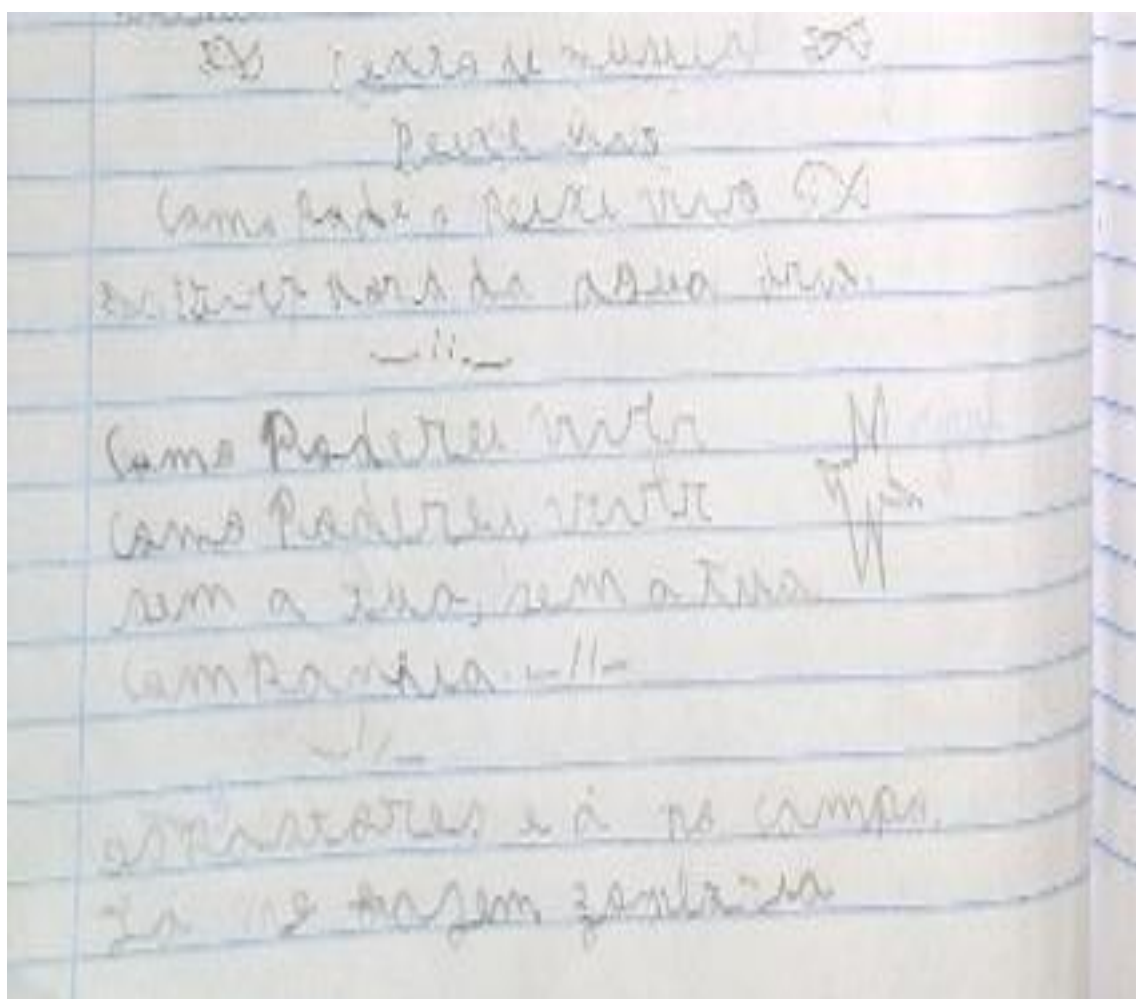 texto e musica
Peixe vivo
Como Pode o Peixe vivo
viver fora da agua fria.
Como Poderei vivir
Como Poderei vivir
sem a tua, sem a tua
Companhia. -//-
os Pastores e á no campo.
Ja me fazem zombaria